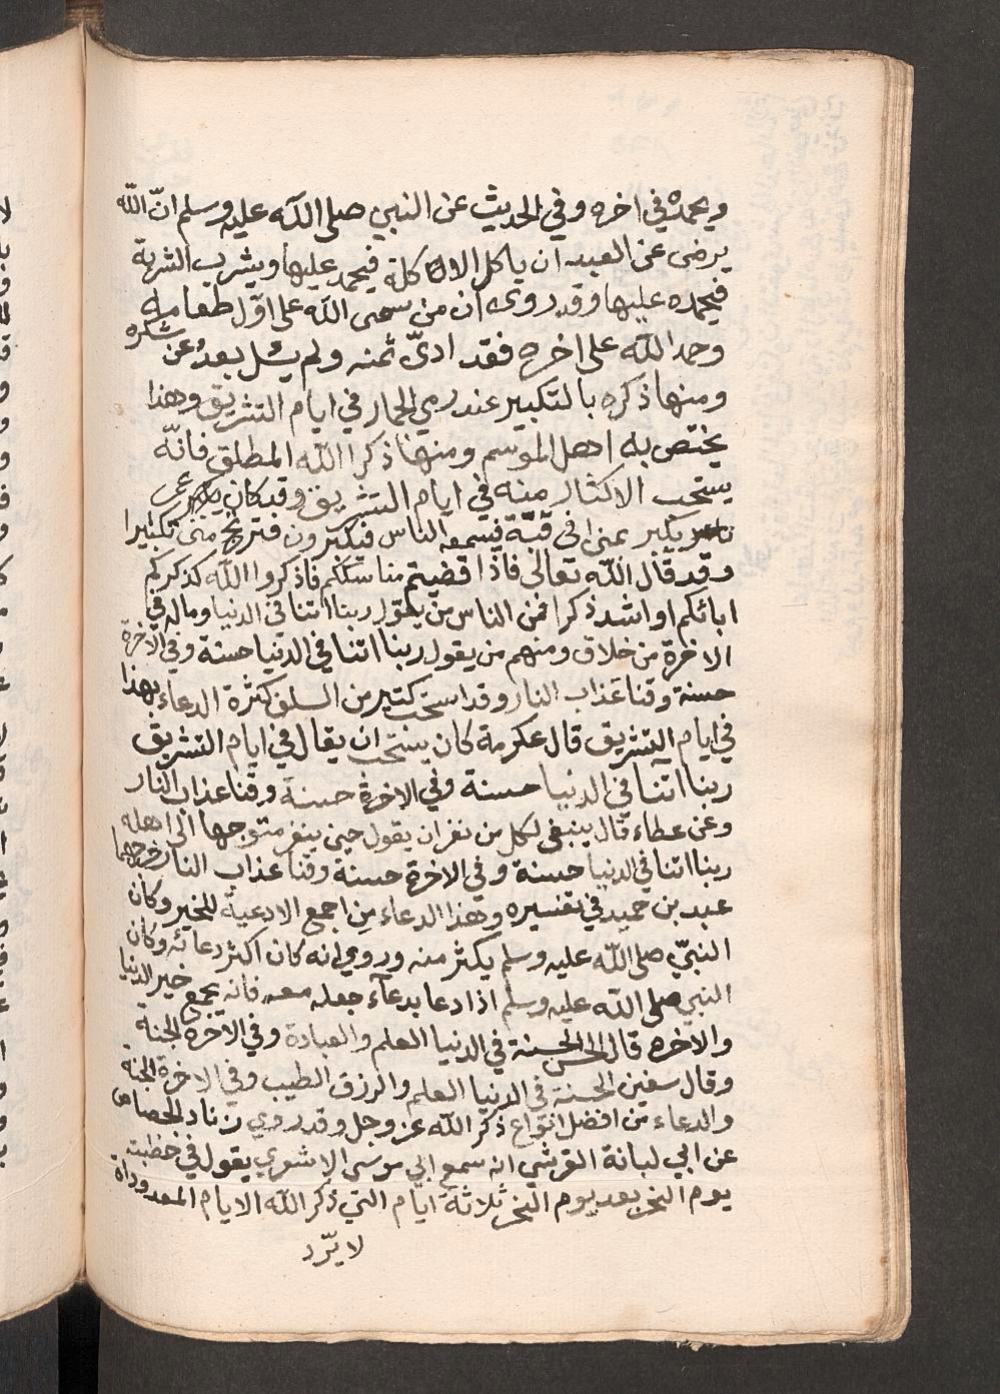 ويحمده في اخره وفي الحديث عن النبي صلى الله عليه وسلم انّ الله
يرضى عن العبد ان ياكل الاكلة فيحمد عليها ويشرب الشربة
فيحمده عليها وقد روى ان من سمى الله على اوّل طعامه
وحمد الله على اخره فقد ادىّ ثمنه ولم يسل بعدُ عن شكره
ومنها ذكره بالتكبير عند رمي الجمار في ايام التشريق وهذا
يختص به اهل الموسم ومنها ذكر الله المطلق فانّه
يستحب الاكثار منه في ايام التشريق وقد كان عمر
يكبر بمنى في قبّة فيسمعه الناس فيكبرون فترتج منى تكبيرا
وقد قال الله تعالى فاذا قضيتم مناسككم فاذكروا الله كذكركم
ابائكم او اشد ذكرا فمن الناس من يقول ربنا اتنا في الدنيا وماله في
الاخرة من خلاق ومنهم من يقول ربنا اتنا في الدنيا حسنة وفي الاخرة
حسنة وقنا عذاب النار وقد استحب كثير من السلف كثرة الدعاء بهذا
في ايام التشريق قال عكرمة كان يستحب ان يقال في ايام التشريق
ربنا اتنا في الدنيا حسنة وفي الاخرة حسنة وقنا عذاب النار
وعن عطاء قال ينبغي لكل من نفر ان يقول حين ينفر متوجها الى اهله
ربنا اتنا في الدنيا حسنة وفي الاخرة حسنة وقنا عذاب النار خرجهما
عبد بن حميد في تفسيره وهذا الدعاء من اجمع الادعية للخير وكان
النبيّ صلى الله عليه وسلم يكثر منه وروي انه كان اكثر دعائه وكان
النبي صلى الله عليه وسلم اذا دعا بدعآء جعله معه فانه يجمع خير الدنيا
والاخره قال الحسن الحسنة في الدنيا العلم والعبادة وفي الآخرة الجنة
وقال سفين الحسنة في الدنيا العلم والرزق الطيب وفي الاخرة الجنة
والدعاء من افضل انواع ذكر الله عز وجل وقد روي زناد الجصاص
عن ابي لبانة القرشي انه سمع ابي موسى الاشوري يقول في خطبته
يوم النحر بعد يوم النحر ثلاثة ايام التي ذكر الله الايام المعدوداة
لا يرّد